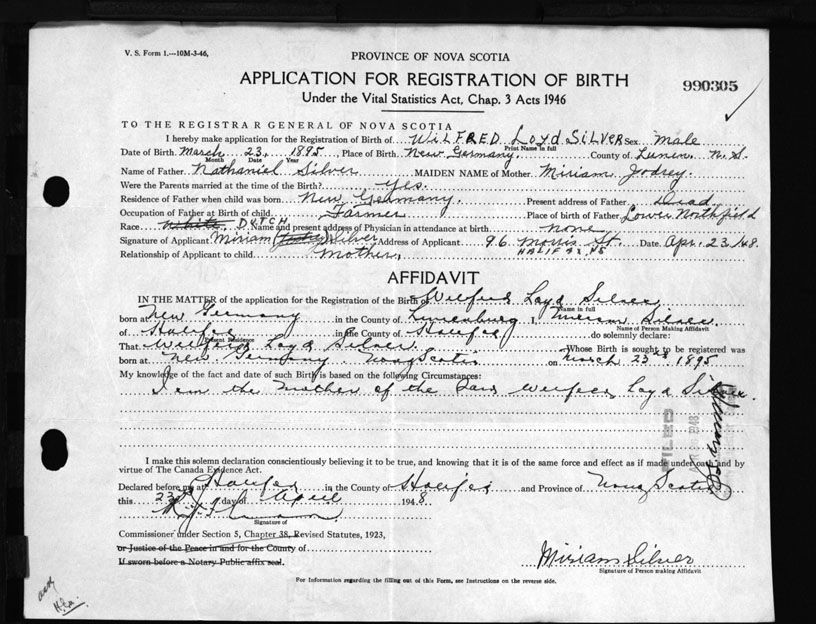 V. S. Form 1.—10M-3-46,
PROVINCE OF NOVA SCOTIA
APPLICATION FOR REGISTRATION OF BIRTH
990305
Under the Vital Statistics Act, Chap. 3 Acts 1946
TO THE REGISTRAR GENERAL OF NOVA SCOTIA
I hereby make application for the Registration of Birth of WILFRED LOYD SILVER Sex Male
Print Name in full
Date of Birth March 23, 1895 Place of Birth New Germany, County of Lunen. N. S.
Month Date Year
Name of Father Nathaniel Silver MAIDEN NAME of Mother Miriam Jodrey.
Were the Parents married at the time of the Birth? Yes.
Residence of Father when child was born New Germany. Present address of Father Dead
Occupation of Father at Birth of child Farmer Place of birth of Father Lower Northfield
Race White, DUTCH Name and present address of Physician in attendance at birth none
Signature of Applicant Miriam Silver Address of Applicant 96 Morris St. Date Apr. 23/48.
HALIFAX, NS
Relationship of Applicant to child mother,
AFFIDAVIT
IN THE MATTER of the application for the Registration of the Birth of Wilfred Loyd Silver
Name in full
born at New Germany in the County of Lunenburg I, Miriam Silver
Name of Person Making Affidavit
of Halifax in the County of Halifax do solemnly declare:
Present Residence
That Wilfred Loyd Silver Whose Birth is sought to be registered was
born at New Germany Nova Scotia on March 23rd 1895
My knowledge of the fact and date of such Birth is based on the following Circumstances:
I am the mother of the Said Wilfred Loyd Silver.
FILED
I make this solemn declaration conscientiously believing it to be true, and knowing that it is of the same force and effect as if made under oath and by
virtue of The Canada Evidence Act.
Declared before me at Halifax in the County of Halifax and Province of Nova Scotia
this 23rd day of April 1948
Signature of
Commissioner under Section 5, Chapter 38, Revised Statutes, 1923,
or Justice of the Peace in and for the County of
If sworn before a Notary Public affix seal.
Miriam Silver
Signature of Person making Affidavit
For Information regarding the filling out of this Form, see Instructions on the reverse side.